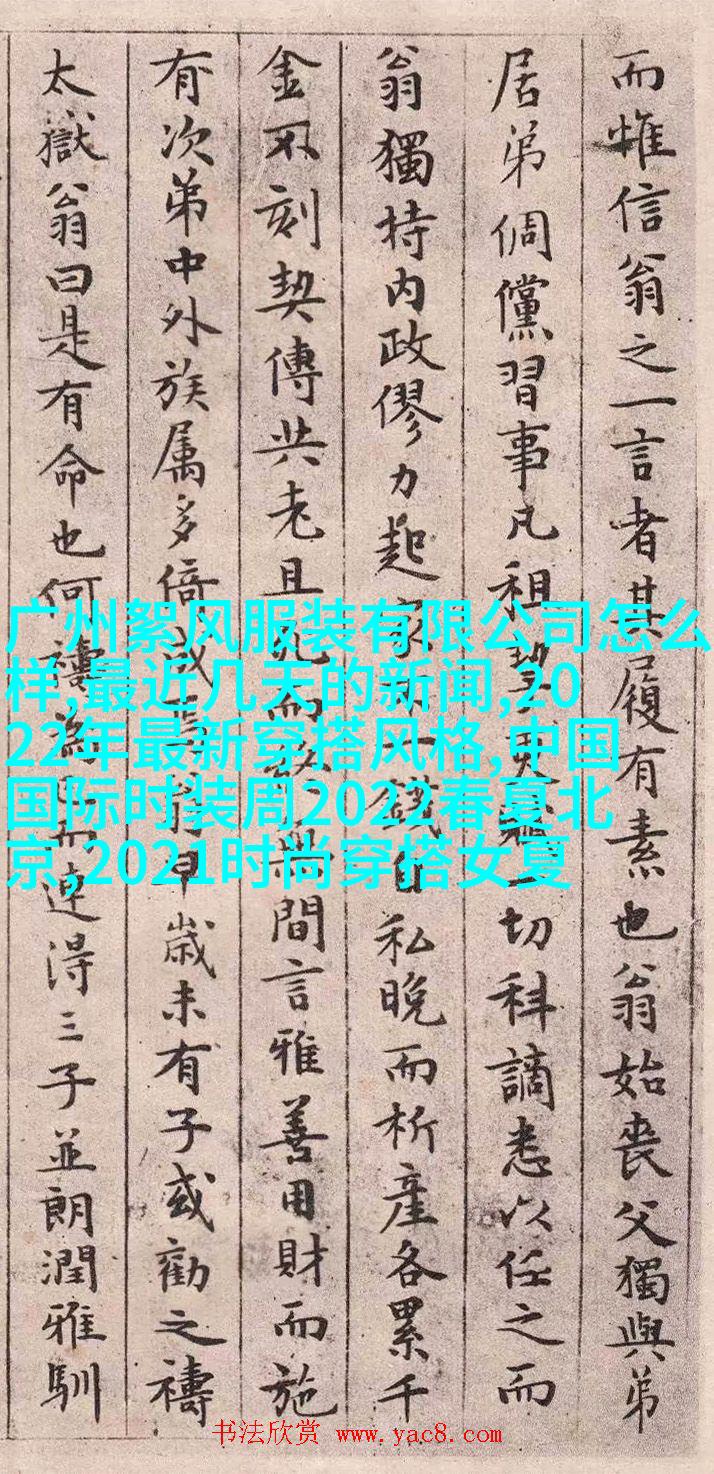 而惟信翁之一言者其履有素也翁始喪父獨與弟
居弟倜儻習事凡租切科謫悉以任之而
翁獨持内政僇力起家一錢自私晚而析產各累千
金不刻契傳共老且而間言雅善用財而施
有次弟中外族属多倚成翁早歲未有子或勸之禱
太獄翁曰是有命也何禱為而連得三子並朗潤雅馴
广州絮风服装有限公司怎么
样,最近几天的新闻,20
22年最新穿搭风格,中国
国际时装周2022春夏北
京,2021时尚穿搭女夏
书法欣赏 www.yac8.com